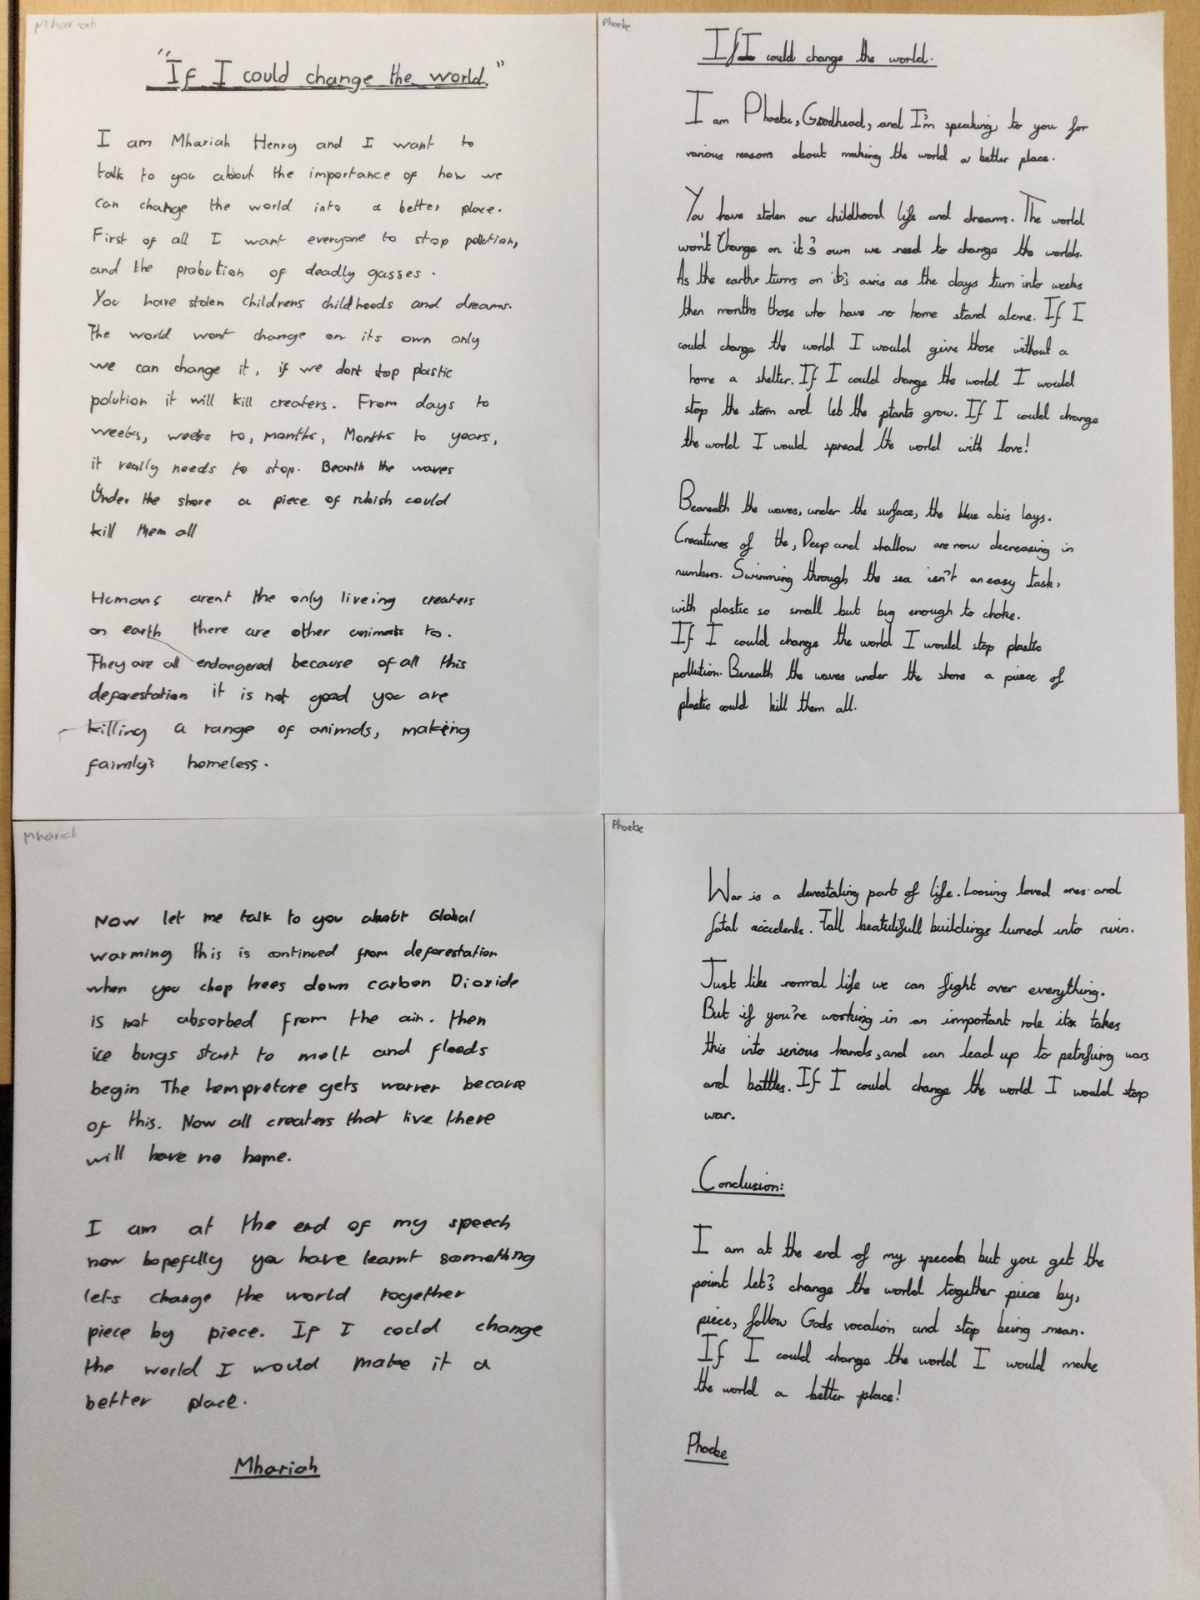 Mhariah
"If I could change the world"
I am Mhariah Henry and I want to
talk to you about the importance of how we
can change the world into a better place.
First of all I want everyone to stop polution,
and the probution of deadly gasses.
You have stolen childrens childhoods and dreams.
The world wont change on its own only
we can change it, if we dont stop plastic
polution it will kill creaters. From days to
weeks, weeks to, months, Months to years,
it really needs to stop. Beanth the waves
Under the shore a piece of rubish could
kill them all
Humans arent the only liveing creaters
on earth there are other animals to.
They are all endangered because of all this
deforestation it is not good you are
killing a range of animals, making
faimly's homeless.
Phoebe
If I could change the world.
I am Phoebe, Goodhead, and I'm speaking, to you for
various reasons about making the world a better place.
You have stolen our childhood life and dreams. The world
won't Change on it's own we need to change the worlds.
As the earths turns on it's axis as the days turn into weeks
then months those who have no home stand alone. If I
could change the world I would give those without a
home a shelter. If I could change the world I would
stop the storm and let the plants grow. If I could change
the world I would spread the world with love!
Beneath the waves, under the surface, the blue abis lays.
Creatures of the, Deep and shallow are now decreasing in
numbers. Swimming through the sea isn't an easy task,
with plastic so small but big enough to choke.
If I could change the world I would stop plastic
pollution. Beneath the waves under the shore a piece of
plastic could kill them all.
Mhariah
Now let me talk to you about Global
warming this is continued from deforestation
when you chop trees down carbon Dioxide
is not absorbed from the air. then
ice burgs start to melt and floods
begin The tempreture gets warrer because
of this. Now all creaters that live there
will have no home.
I am at the end of my speech
now hopefully you have learnt something
lets change the world together
piece by piece. If I could change
the world I would make it a
better place.
Mhariah
Phoebe
War is a devestating part of life. Loosing loved ones and
fatal accidents. Tall beatuifull buildings turned into ruin.
Just like normal life we can fight over everything.
But if you're working in an important role its takes
this into serious hands, and can lead up to petrifuing wars
and battles. If I could change the world I would stop
war.
Conclusion:
I am at the end of my speech but you get the
point let's change the world together piece by,
piece, follow Gods vocation and stop being mean.
If I could change the world I would make
the world a better place!
Phoebe